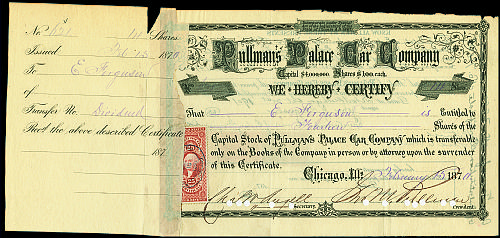 No. 14 Shares
Issued Feb 15 1870
To E. Ferguson
Of
Transfer No. Dividend
That the above described Certificate
187
Pullman's Palace Car Company
Capital $4,000,000 Shares $100 each.
WE HEREBY CERTIFY
That E. Ferguson is Entitled to
Fourteen Shares of the
Capital Stock of PULLMAN'S PALACE CAR COMPANY which is transferable
only on the Books of the Company in person or by attorney upon the surrender
of this Certificate.
Chicago, Ill. February 15 1870
Secretary. President.